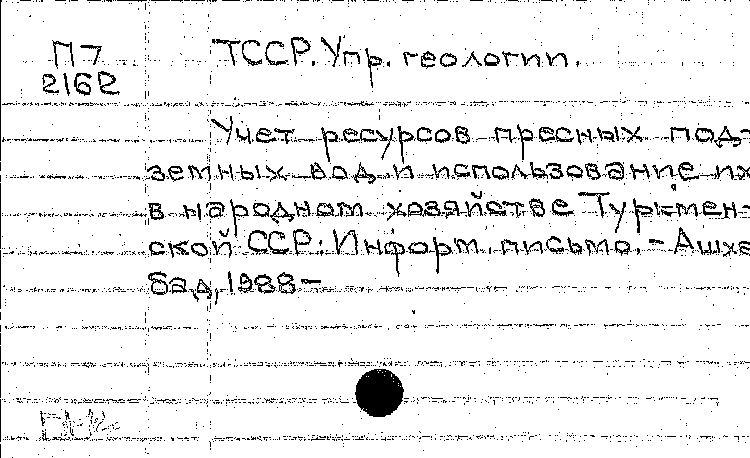 П7 ТССР. Упр. геологии.
2162
Учет ресурсов пресных под-
земных вод и использование их
в народном хозяйстве Туркмен-
ской ССР: Информ. письмо. – Ашха-
бад, 1988–